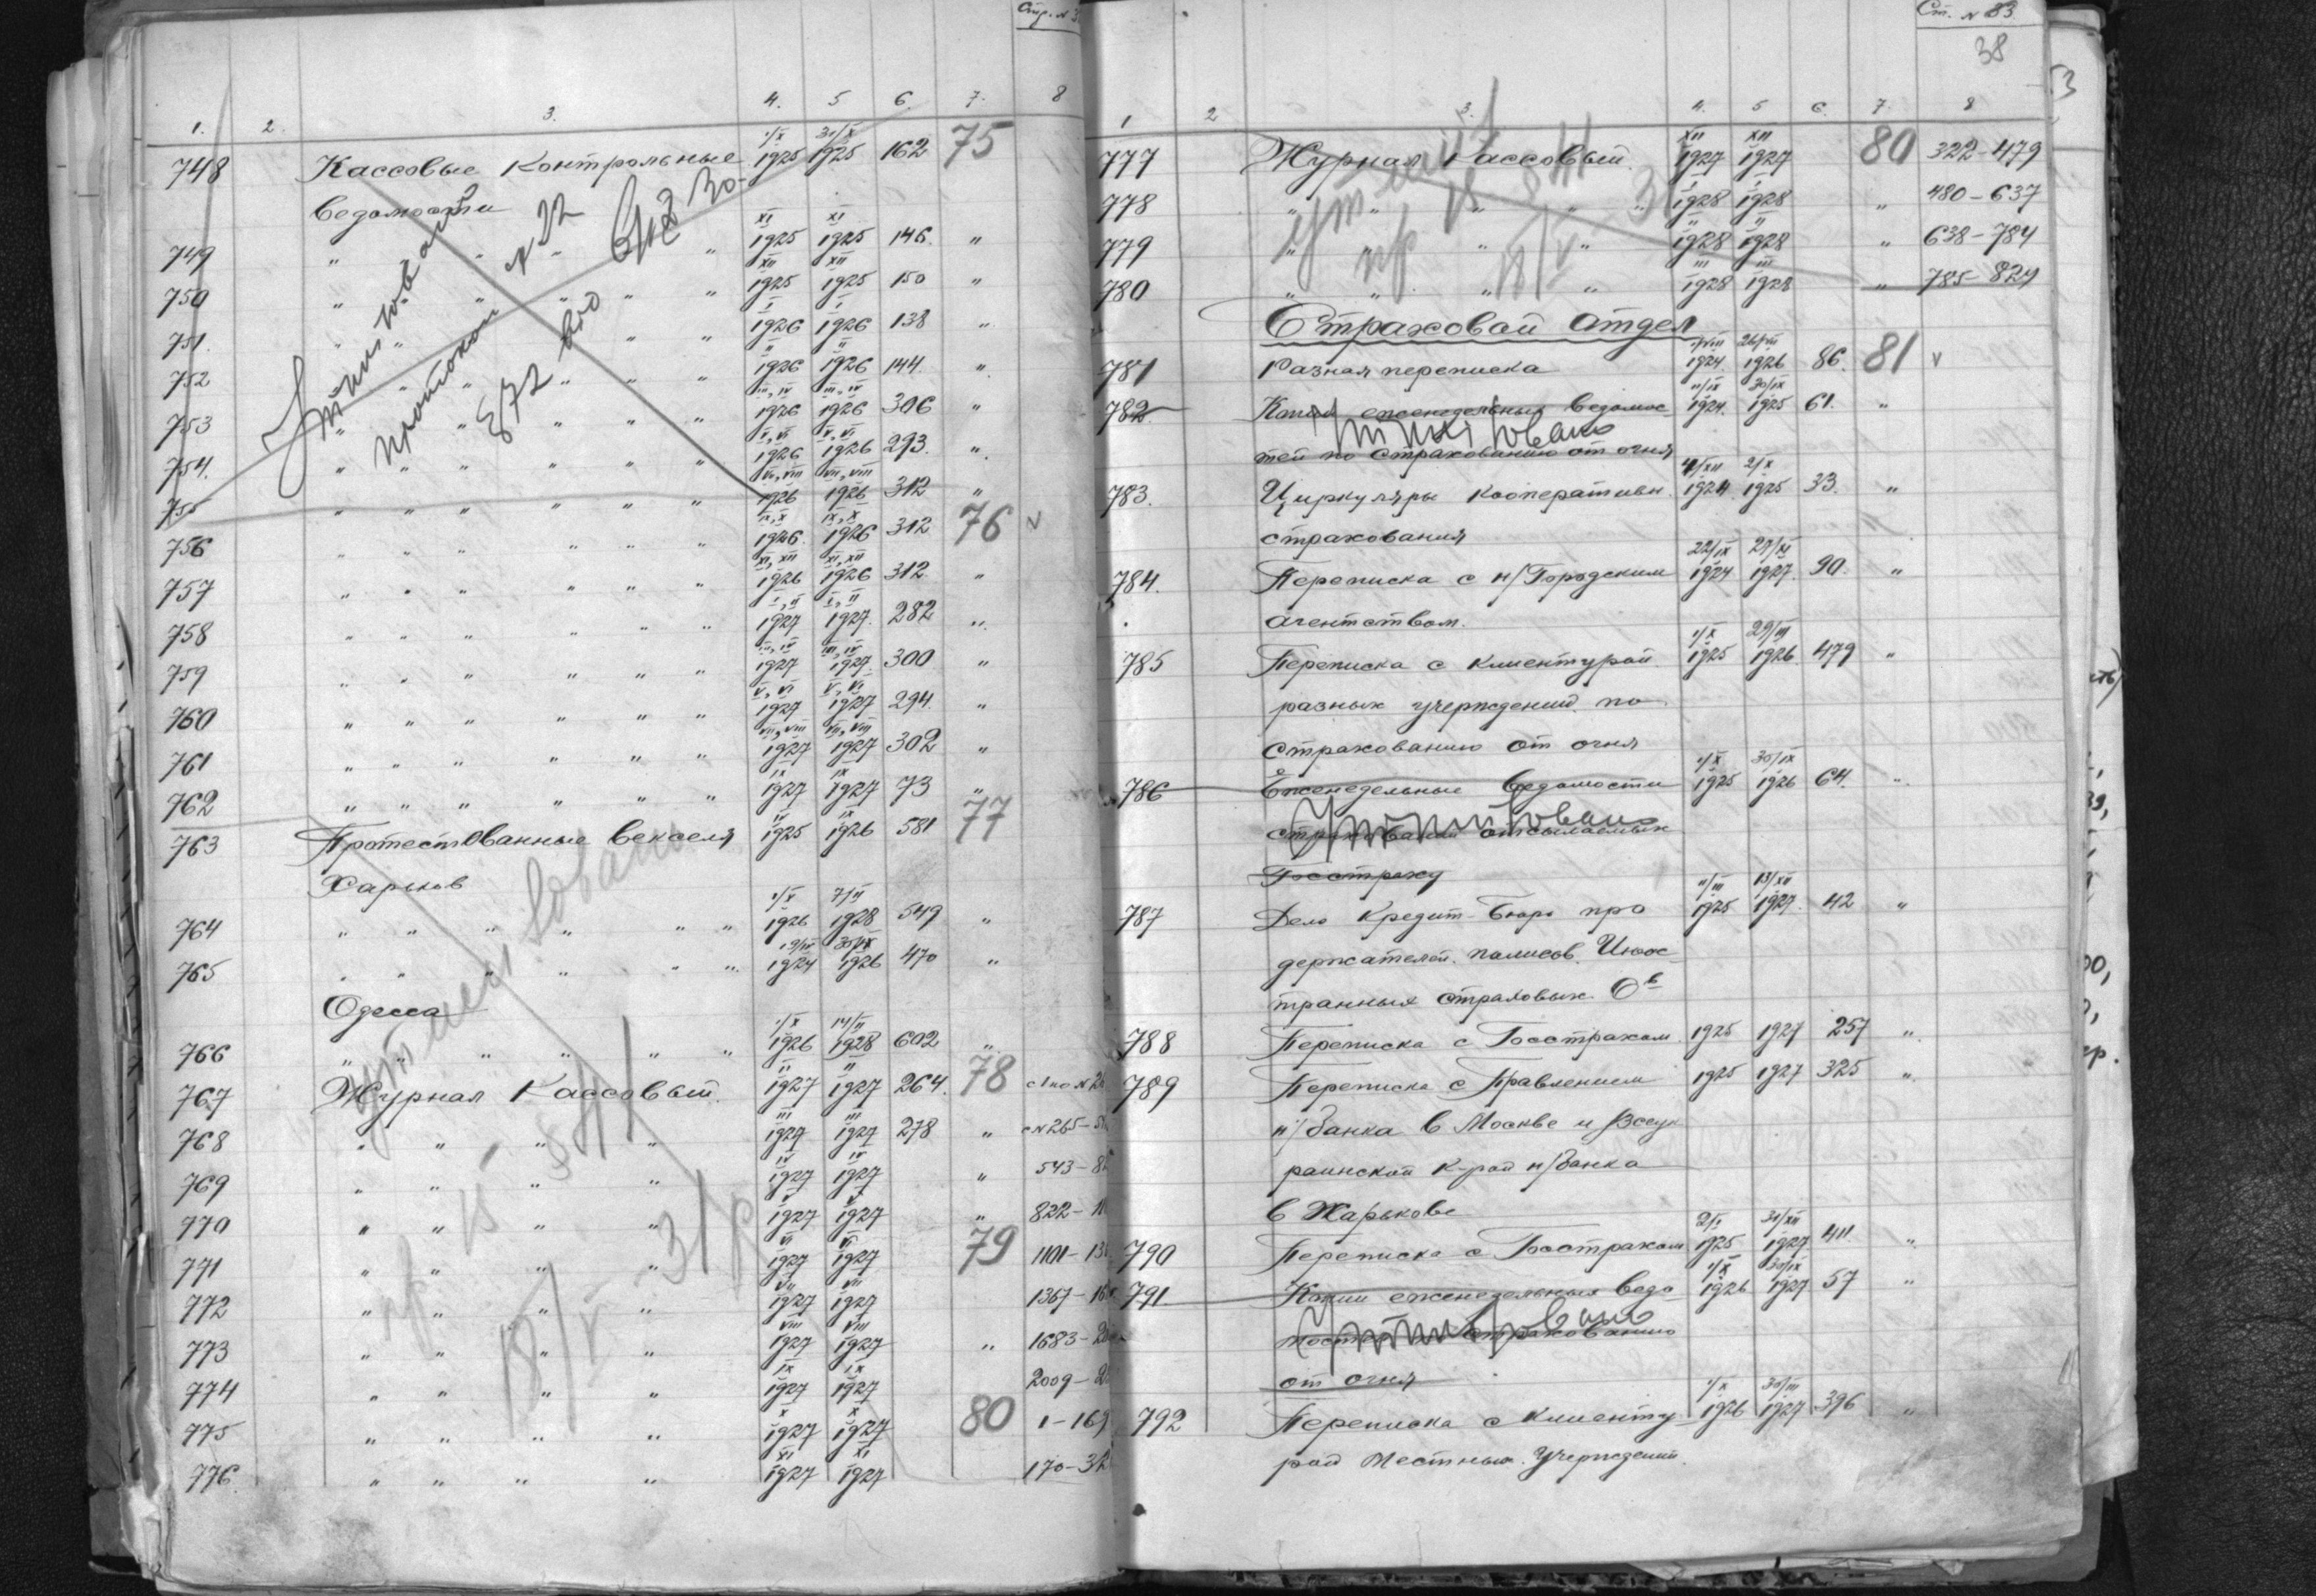 Стр. N 3
1. 2. 3. 4. 5 6. 7. 8
748 Кассовые Контрольные 1/X 1925 31/X 1925 162 75
ведомости
749 " " " " XI 1925 XI 1925 146. "
750 " " " " " XII 1925 XII 1925 150 "
751. " " " " I 1926 I 1926 138 "
752 " " " " " II 1926 II 1926 144. "
753 " " " " " III, IV 1926 III, IV 1926 306 "
754. " " " " " " V, VI 1926 V, VI 1926 293. "
755 " " " " " " VII, VIII 1926 VII, VIII 1926 312 "
756 " " " " " " IX, X 1926 IX, X 1926 312 76 v
757 " " " " " " XI, XII 1926 XI, XII 1926 312 "
758 " " " " " " I, II 1927 I, II 1927. 282 "
759 " " " " " " III, IV 1927 III, IV 1927. 300 "
760 " " " " " " V, VI 1927 V, VI 1927 294. "
761 " " " " " " VII, VIII 1927 VII, VIII 1927 302 "
762 " " " " " " IX 1927 IX 1927 73 "
763 Протестованные векселя 1925 IX 1926 581 77
Харьков
764 " " " " " " 1/X 1926 7/II 1928 549 "
765 " " " " " " 1924 1926 470 "
Одесса
766 " " " " " " 1/X 1926 14/II 1928 602 "
767 Журнал Кассовый. II 1927 II 1927 264. 78
768 " " " " III 1927 III 1927 278 " с N 265-
769 " " " " IV 1927 IV 1927 " 543-
770 " " " " V 1927 V 1927 " 822-
771 " " " " VI 1927 VI 1927 79 1101-
772 " " " " VII 1927 VII 1927 1367-
773 " " " " VIII 1927 VIII 1927 " 1683-
774 " " " " IX 1927 IX 1927 2009-
775 " " " " X 1927 X 1927 80 1-169
776. " " " " XI 1927 XI 1927 170-32
протокол N 22
872 кло
Ст. N 83.
38
1 2 3. 4. 5 6. 7. 8
777 Журнал Кассовый. XII 1927 XII 1927 80 322-479
778 " " " " " I 1928 I 1928 " 480-637
779 " " " " II 1928 II 1928 " 638-784
780 " " " " III 1928 III 1928 " 785-824
Страховой отдел
781 Разная переписка 1924. 1926 86. 81 v
782 Копии еженедельных ведомос 11/IX 1924. 30/IX 1925 61. "
Утилизовано
тей по страхованию от огня
783. Циркуляры кооперативн. 1924. 2/X 1925 33. "
страхования
784. Переписка с н/Городским 22/IX 1924 27/XI 1927. 90. "
агентством.
785 Переписка с клиентурой 1/X 1925 29/III 1926 479 "
разных учреждений по
страхованию от огня
786 Еженедельные ведомости 1/X 1925 30/IX 1926 64. "
Утилизовано
отсылаемых
Госстраху
787 Дело Кредит-Бюро про 11/III 1925 13/XII 1927. 42 "
держателей полисов Инос
транных страховых О-в
788 Переписка с Госстрахом 1925 1927 257 "
789 Переписка с Правлением 1925 1927 325 "
н/банка в Москве и Всеук
раинской К-рой н/банка
в Харькове
790 Переписка с Госстрахом 1925 31/XII 1927 411 "
791 Копии еженедельных ведо 1/X 1926 30/IX 1927. 57 "
Утилизовано
мостей страхованию
от огня
792 Переписка с клиенту 1/X 1926 1927 396 "
рой местных учреждений.